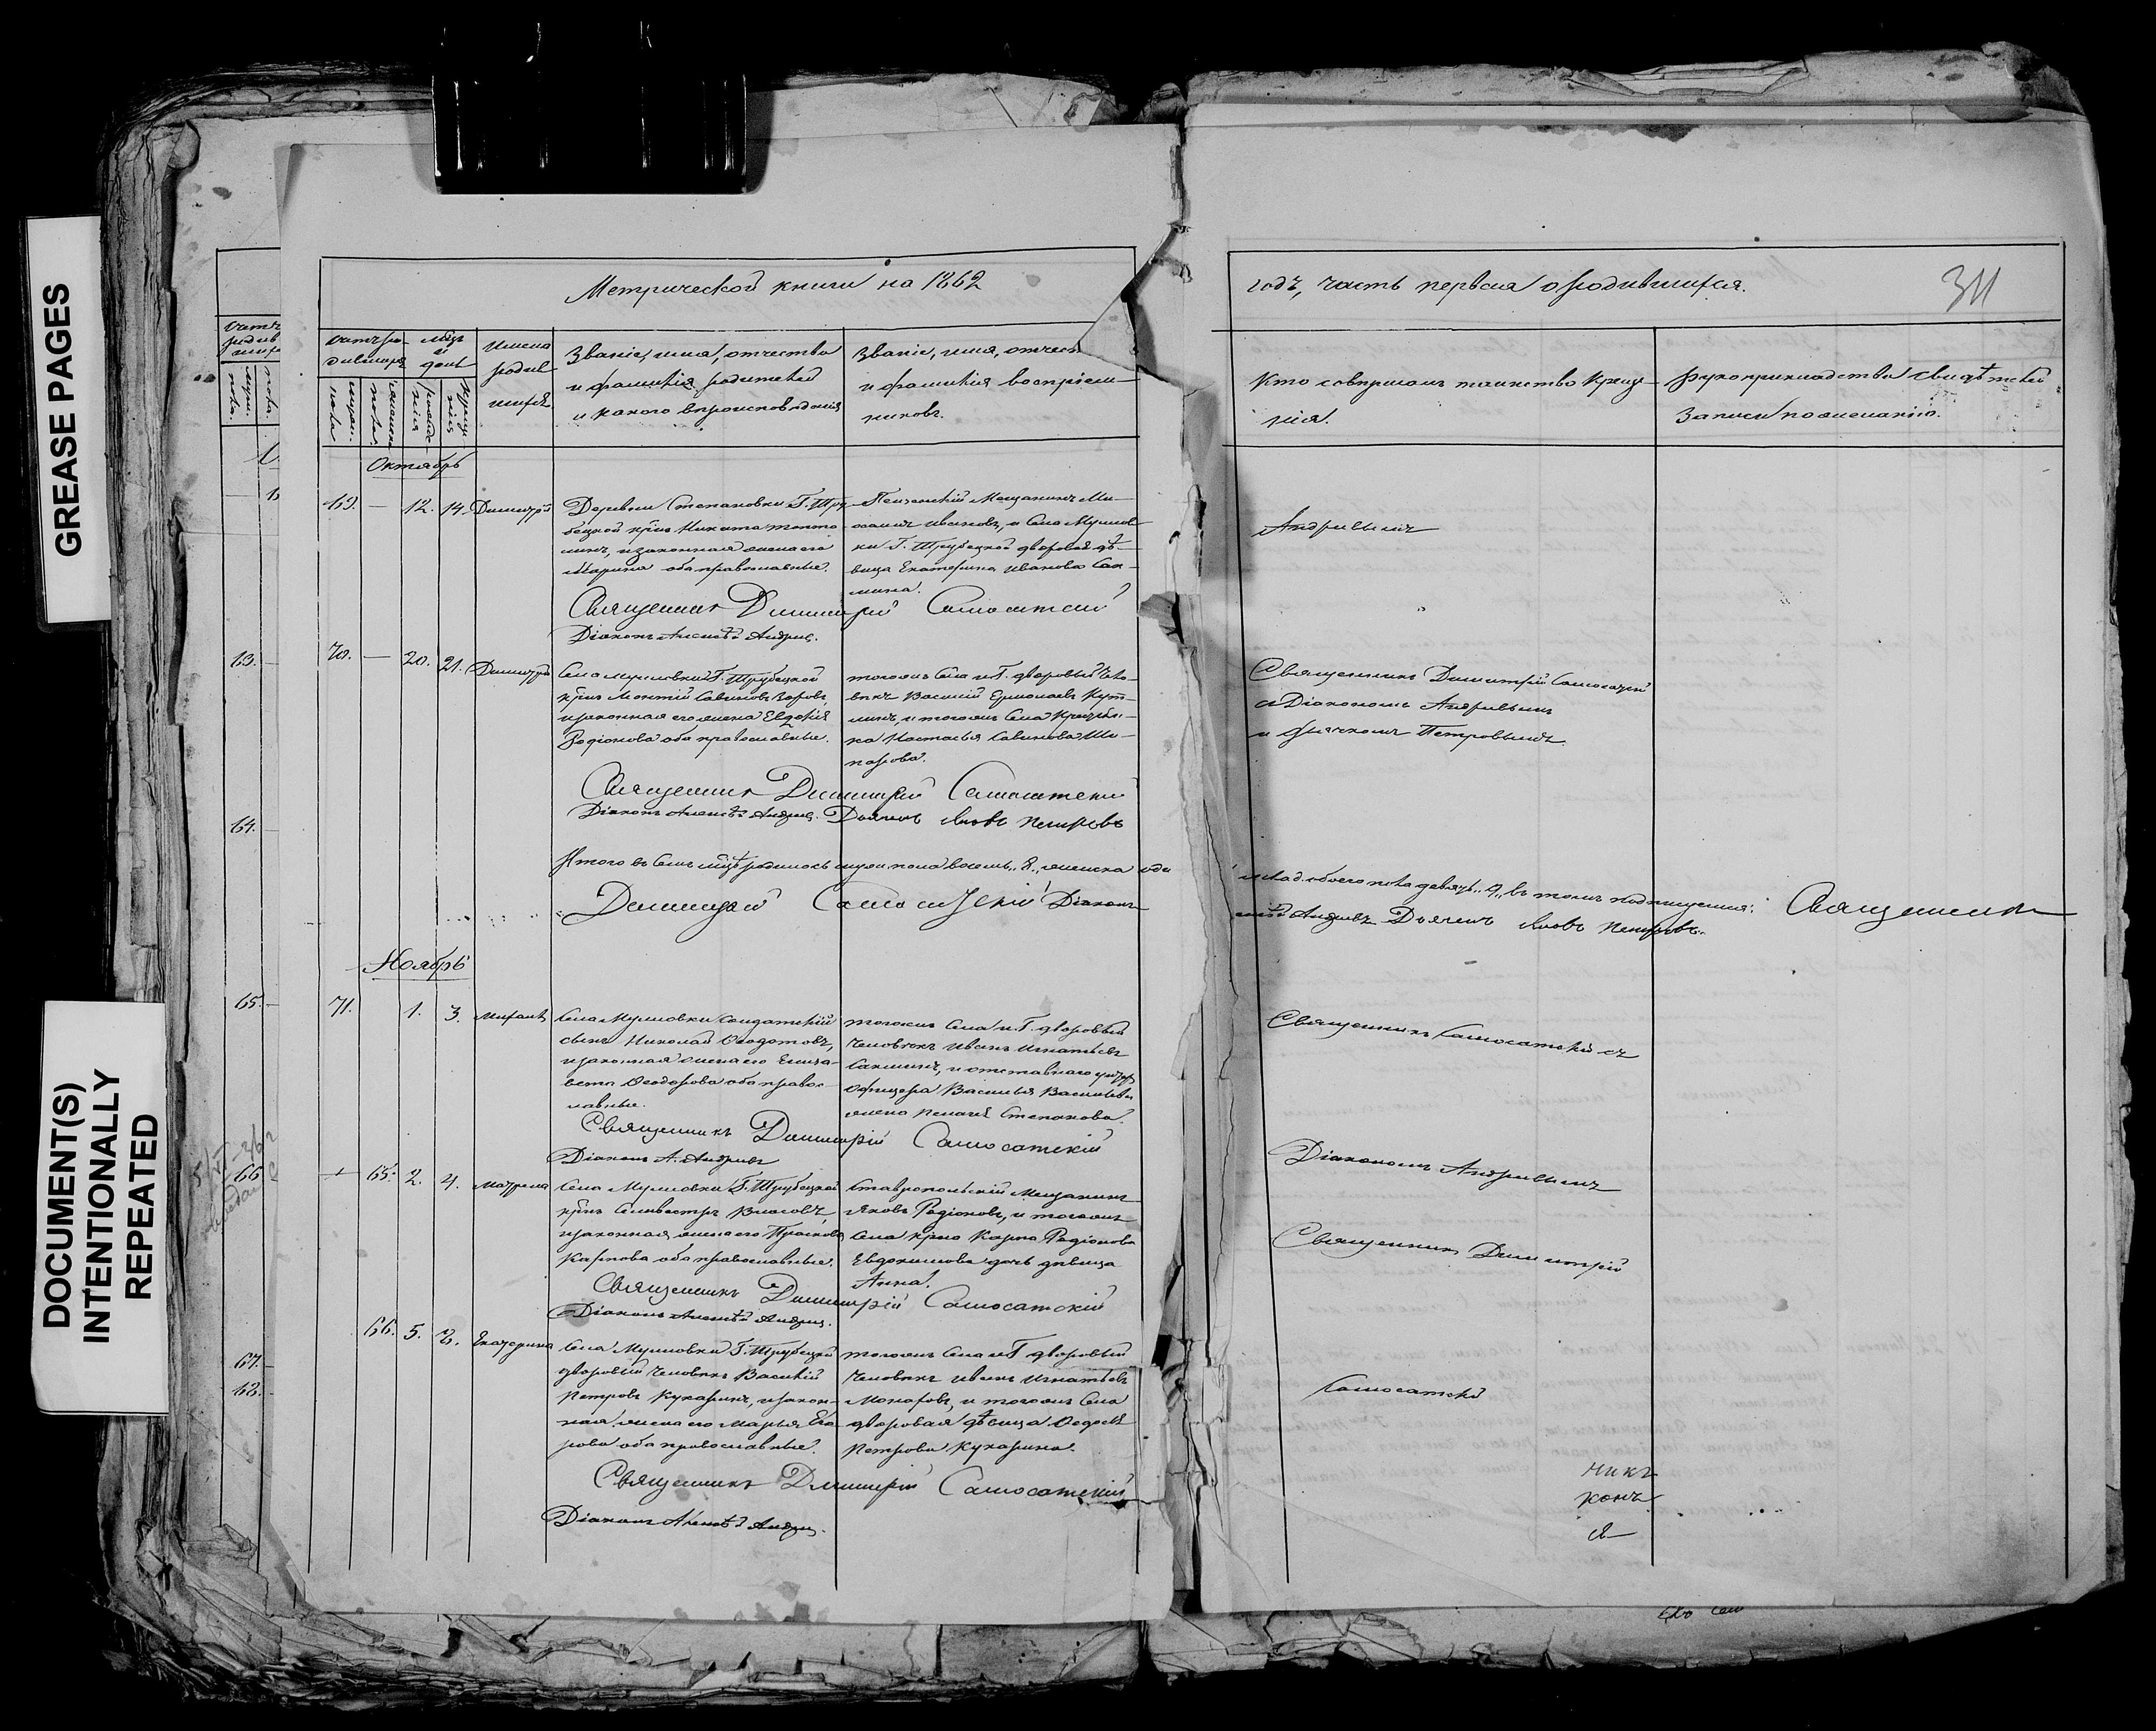 GREASE PAGES
DOCUMENT(S)
INTENTIONALLY
REPEATED
Метрической книги на 1862
годъ, часть первая о родившихся.
311
Имена
родив
шихся
Званіе, имя, отчество
и фамилія родителей
и какого вѣроисповѣданія
Званіе, имя, отчест
и фамилія воспріем-
никовъ.
Кто совершалъ таинство Креще-
нія.
Рукоприкладство свидѣтелей
записи по желанію.
Октябрь
69. — 12. 14. Димитрій
Деревни Степановки Г. Тру-
бецкой крѣс Никита
линъ, и законная жена его
Марина оба православные.
Пензенскій Мещанинъ Ми-
хаилъ Ивановъ, и Села Муммов
ки Г. Трубецкой дворовая дѣ-
вица Екатерина Иванова Сак-
мина.
Андреевымъ
Священникъ Димитрій Самосатскій
Діаконъ Алексѣй Андреев.
70. — 20. 21. Димитрій
Села Муммовки Г. Трубецкой
крѣс Леонтій Савиновъ
и законная его жена Евдокія
Родіонова оба православные.
тогожъ Села и Г. дворовый чело-
вѣкъ Василій Ермолаевъ
линъ, и тогожъ Села Крестьян-
ка Настасья Савинова
парова.
Священникъ Димитрій Самосатскій
с Діакономъ Андреевымъ
и дьячкомъ Петровымъ
Священникъ Димитрій Самосатскій
Діаконъ Алексѣй Андреев. Дьячекъ Яковъ Петровъ
Итого въ семъ мцѣ родилось муж. пола восемь „8„ женска одн
а всего обоего пола девять „9„ въ томъ подпишемся: Священникъ
Димитрій Самосатскій Діаконъ
Алексѣй Андреевъ Дьячекъ Яковъ Петровъ.
Ноябрь
71. 1. 3. Михаилъ
Села Муммовки Солдатскій
сынъ Николай Ѳедотовъ,
и законная жена его Елиза-
вета Ѳеодорова оба право-
славные.
тогожъ Села и Г. дворовый
человѣкъ Иванъ Игнатьевъ
Сакминъ, и отставнаго унтеръ
офицера Василья Васильева
жена Пелагея Степанова.
Священникъ Самосатскій съ
Священникъ Димитрій Самосатскій
Діаконъ А. Андреевъ
65. 2. 4. Матрена
Села Муммовки Г. Трубецкой
крѣс Селиверстъ Власовъ,
и законная жена его Прасковья
Карпова оба православные.
Ставропольскій Мещанинъ
Яковъ Родіоновъ, и тогожъ
Села крѣс Карпа Родіонова
Евдокимова дочь дѣвица
Анна.
Діакономъ Андреевымъ
Священникъ Димитрій
Священникъ Димитрій Самосатскій
Діаконъ Алексѣй Андреев.
66. 5. 7. Екатерина
Села Муммовки Г. Трубецкой
дворовый человѣкъ Василій
Петровъ Кухаринъ, и закон-
ная жена его Марья Его-
рова оба православные.
тогожъ Села и Г. дворовый
человѣкъ Иванъ Игнатьевъ
Монаховъ, и тогожъ Села
дворовая дѣвица Ѳедосья
Петрова Кухарина.
Самосатскій
Священникъ Димитрій Самосатскій
Діаконъ Алексѣй Андреев.
никъ
конъ
я
63.
64.
65.
66
67.
68.